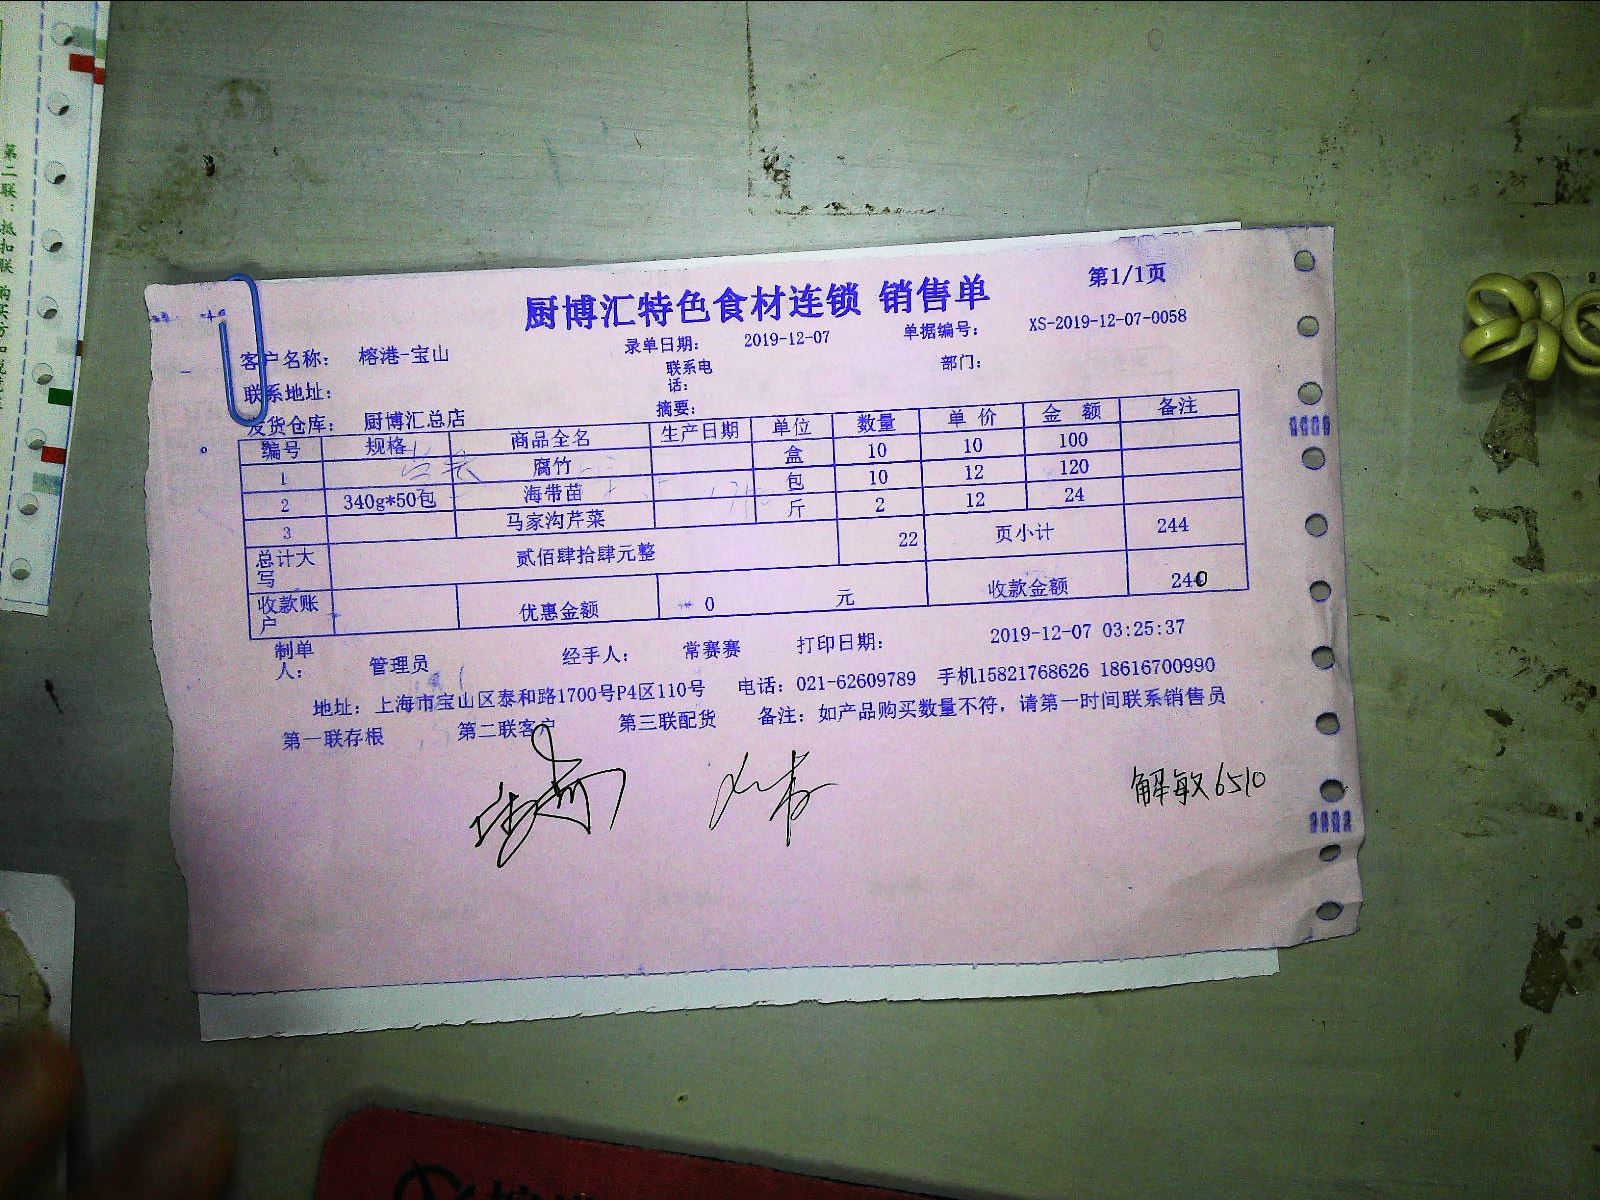 第二联：抵扣联 购买方扣税凭
厨博汇特色食材连锁 销售单
第1/1页
录单日期： 2019-12-07 单据编号： XS-2019-12-07-0058
客户名称： 榕港-宝山 联系电话： 部门：
联系地址：
摘要：
发货仓库： 厨博汇总店
编号 规格 商品全名 生产日期 单位 数量 单价 金额 备注
1 腐竹 盒 10 10 100
2 340g*50包 海带苗 包 10 12 120
3 马家沟芹菜 斤 2 12 24
总计大写 贰佰肆拾肆元整 22 页小计 244
收款账户 优惠金额 0 元 收款金额 240
制单人： 管理员 经手人： 常赛赛 打印日期： 2019-12-07 03:25:37
地址：上海市宝山区泰和路1700号P4区110号 电话：021-62609789 手机15821768626 18616700990
第一联存根 第二联客户 第三联配货 备注：如产品购买数量不符，请第一时间联系销售员
解敏6510